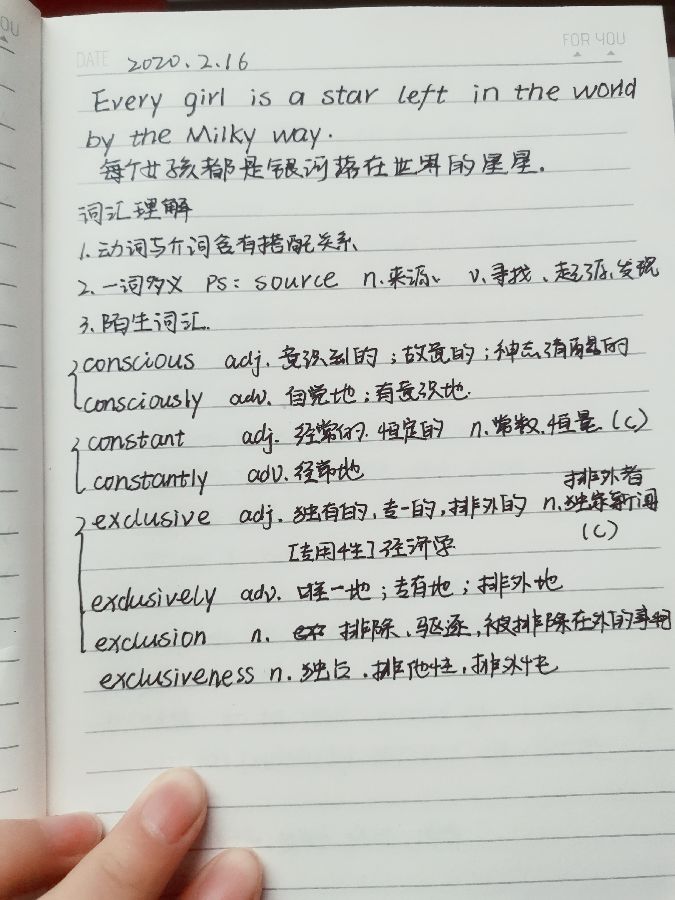 OU
FOR YOU
DATE 2020.2.16
Every girl is a star left in the world
by the Milky way.
每个女孩都是银河落在世界的星星.
词汇理解
1.动词与介词含有搭配关系
2.一词多义 Ps: source n.来源、 v.寻找、起源、发现
3.陌生词汇.
conscious adj.意识到的;故意的;神志清醒的
consciously adv.自觉地;有意识地.
constant adj.经常的.恒定的 n.常数.恒量(C)
constantly adv.经常地
排外者
exclusive adj.独有的,专一的,排外的 n.独家新闻
(C)
[专用性]经济学
exclusively adv.唯一地;专有地;排外地
exclusion n. 排除、驱逐,被排除在外的事物
exclusiveness n.独占.排他性,排外性